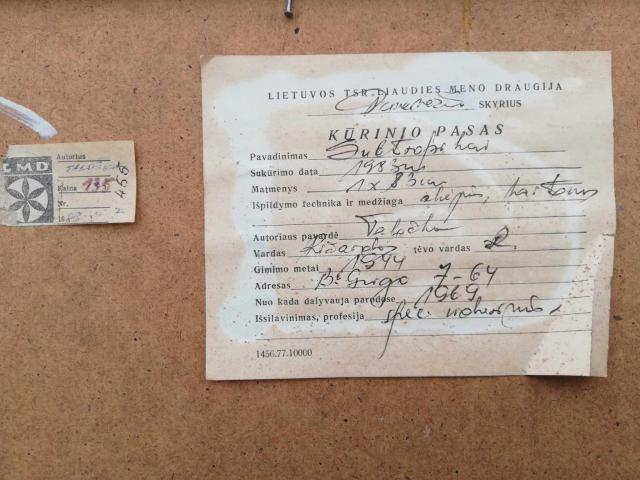 LMD
Autorius
Kaina 135
Nr.
455
LIETUVOS TSR LIAUDIES MENO DRAUGIJA
SKYRIUS
KŪRINIO PASAS
Pavadinimas Subtropikai
Sukūrimo data 1983 m
Matmenys 1 x 83 cm
Išpildymo technika ir medžiaga aliejus, kartonas
Autoriaus pavardė
Vardas Ričardas tėvo vardas
Gimimo metai 1944
Adresas 7-64
Nuo kada dalyvauja parodose 1969
Išsilavinimas, profesija spec.
1456.77.10000